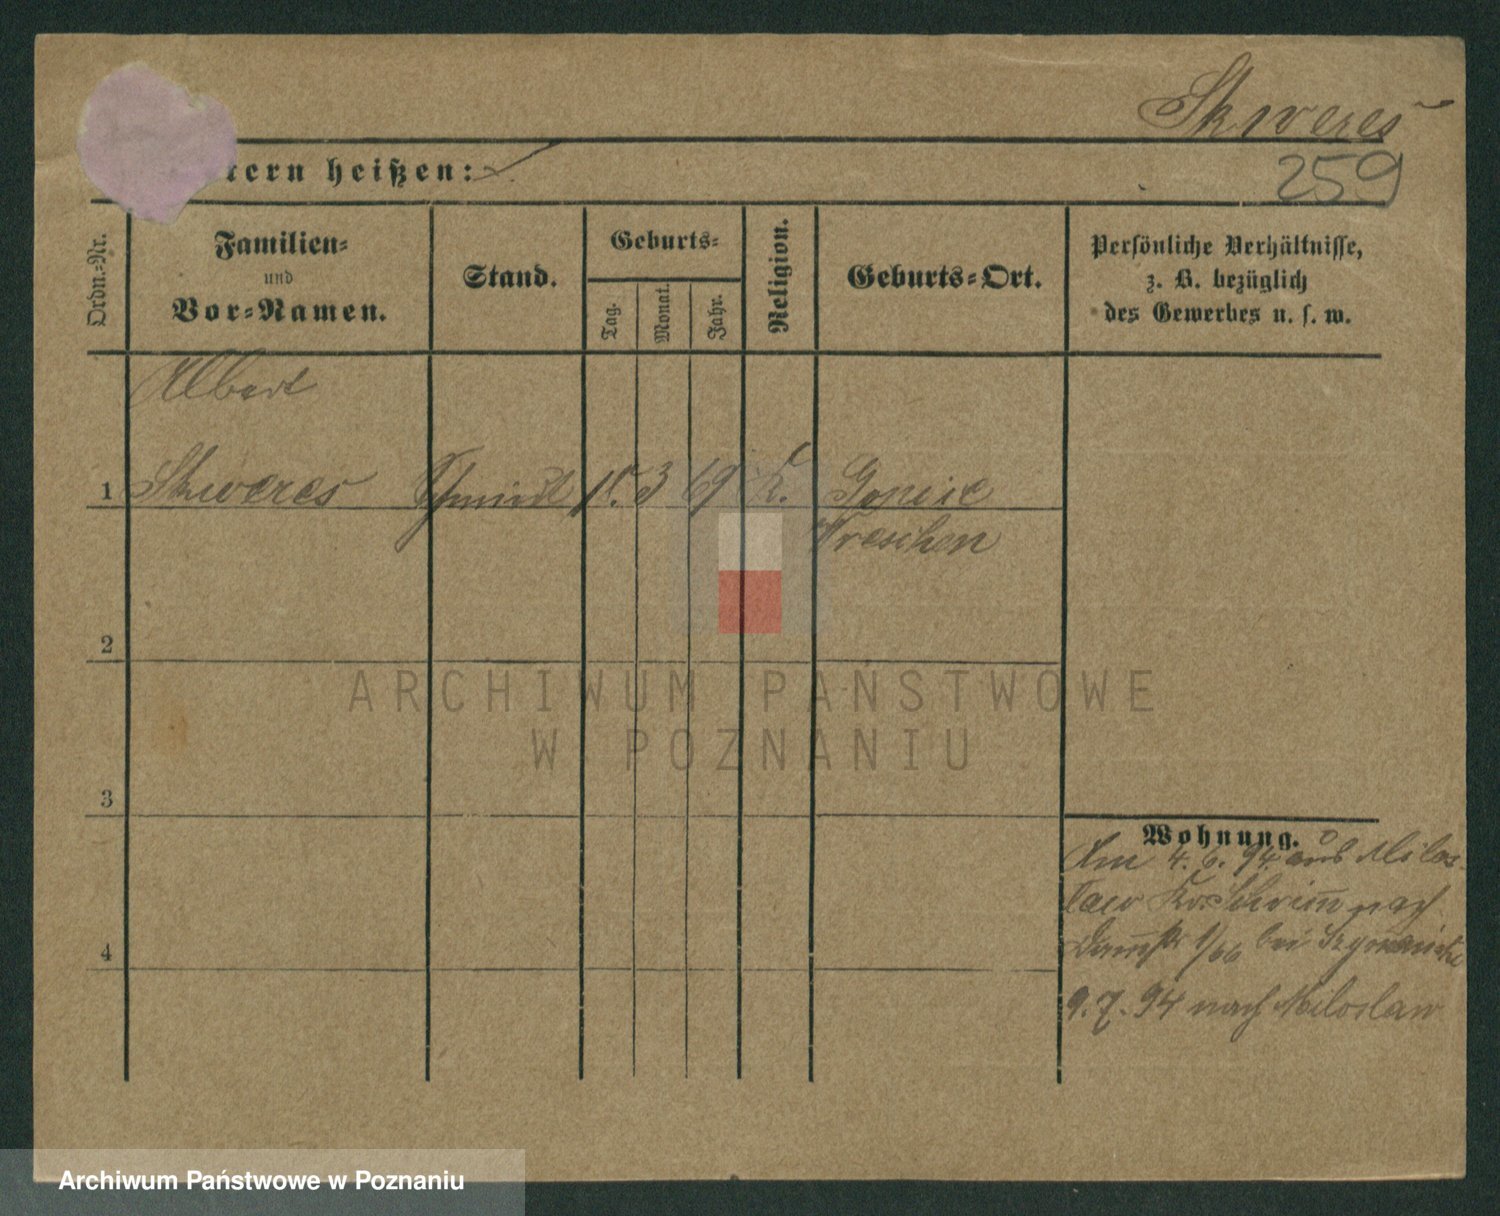 Skweres
tern heißen:
259
Ordn.-Nr.
Familien-
und
Vor-Namen.
Stand.
Geburts-
Tag.
Monat.
Jahr.
Religion.
Geburts-Ort.
Persönliche Verhältnisse,
z. B. bezüglich
des Gewerbes u. s. w.
Albert
1 Skweres Schmidt 15. 3 69 K.
Wreschen
2
3
4
Wohnung.
Am 4. 6. 94 aus Milos-
law nach
1/66 bei
9. 7. 94 nach Miloslaw
ARCHIWUM PAŃSTWOWE
W POZNANIU
Archiwum Państwowe w Poznaniu